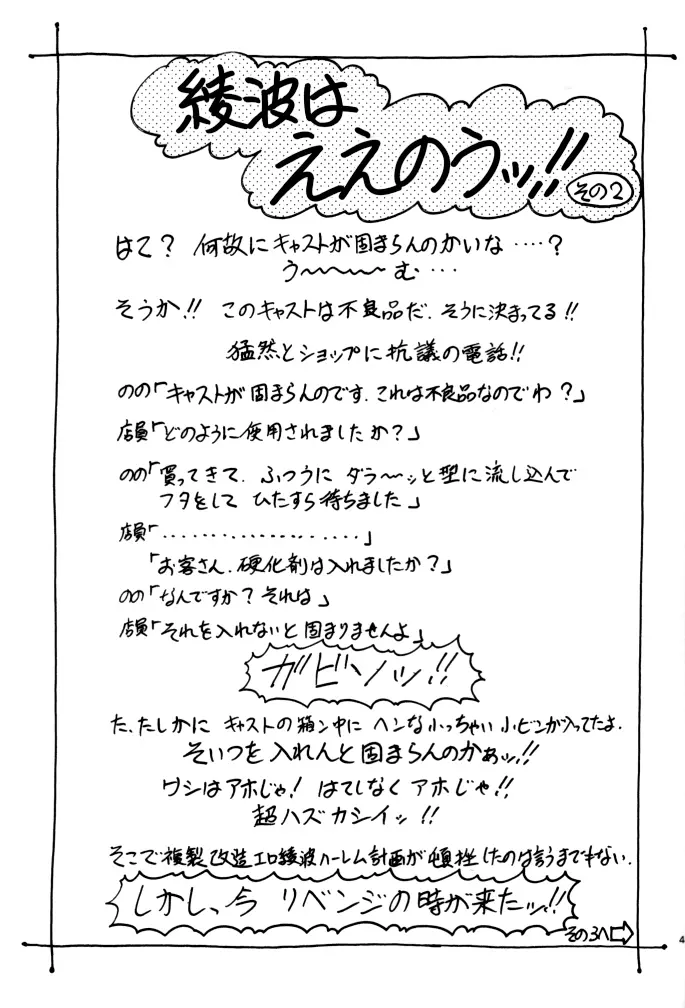 綾波は
ええのうッ!!
その2
はて？ 何故にキャストが固まらんのかいな‥‥？
う〜〜〜〜む‥‥
そうか!! このキャストは不良品だ．そうに決まってる!!
猛然とショップに抗議の電話!!
のの「キャストが固まらんのです．これは不良品なのでわ？」
店員「どのように使用されましたか？」
のの「買ってきて．ふつうに ダラ〜ッと型に流し込んで
フタをして ひたすら待ちました」
店員「‥‥‥‥‥‥‥‥‥」
「お客さん．硬化剤は入れましたか？」
のの「なんですか？それは」
店員「それを入れないと固まりませんよ」
ガビソッ!!
た、たしかに キャストの箱ン中に ヘンな小っちゃい 小ビンが入ってたよ．
そいつを 入れんと固まらんのかぁッ!!
ワシはアホじゃ! はてしなく アホじゃ!!
超ハズカシイッ!!
そこで複製改造エロ綾波ハーレム計画が頓挫したのは言うまでもない．
しかしっ、今 リベンジの時が来たッ!!
その3へ
4